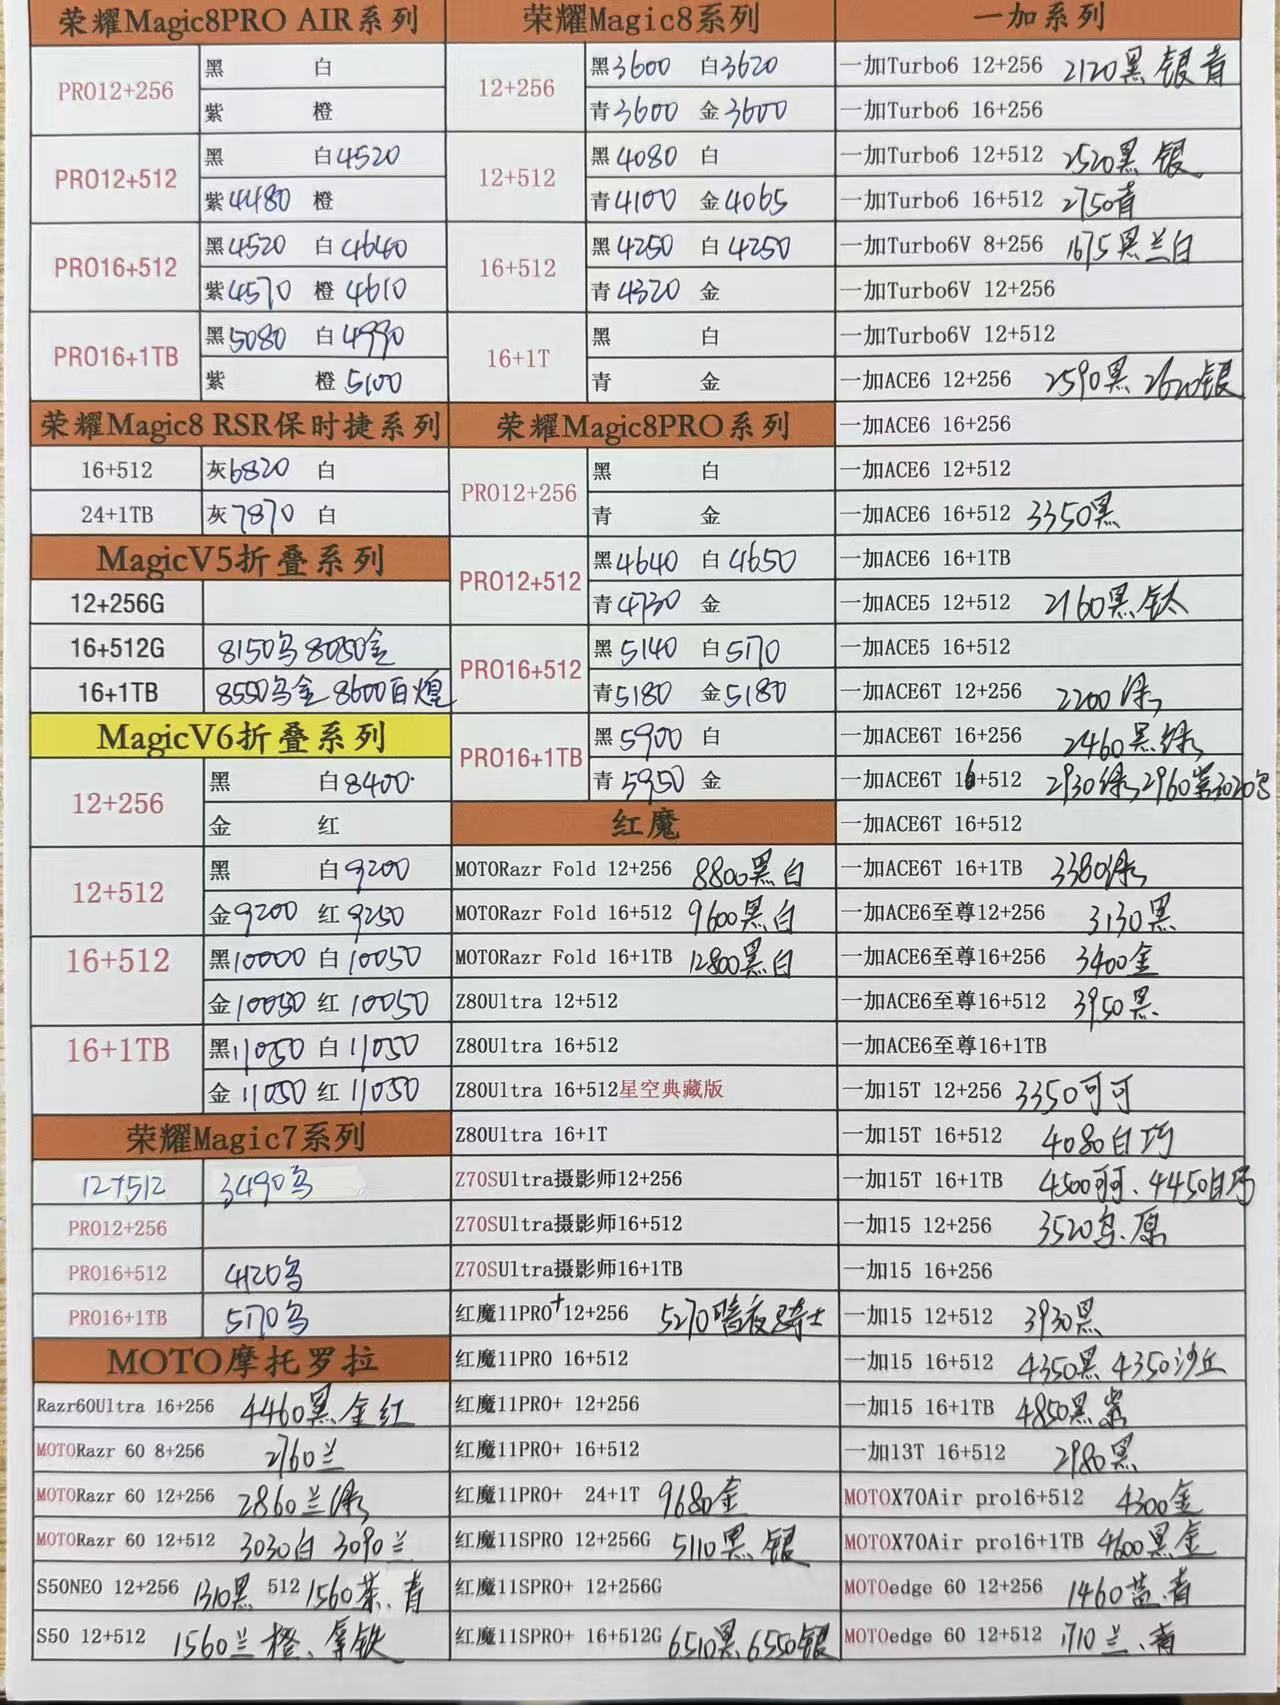 荣耀Magic8PRO AIR系列
PRO12+256 黑 白
紫 橙
PRO12+512 黑 白4520
紫4480 橙
PRO16+512 黑4520 白4640
紫4570 橙4610
PRO16+1TB 黑5080 白4990
紫 橙5100
荣耀Magic8 RSR保时捷系列
16+512 灰6820 白
24+1TB 灰7870 白
MagicV5折叠系列
12+256G
16+512G 8150乌 8050金
16+1TB 8550乌金 8600白煌
MagicV6折叠系列
12+256 黑 白8400
金 红
12+512 黑 白9200
金9200 红9250
16+512 黑10000 白10050
金10050 红10050
16+1TB 黑11050 白11050
金11050 红11050
荣耀Magic7系列
12+512 3490乌
PRO12+256
PRO16+512 4120乌
PRO16+1TB 5170乌
MOTO摩托罗拉
Razr60Ultra 16+256 4460黑金红
MOTORazr 60 8+256 2760兰
MOTORazr 60 12+256 2860兰绿
MOTORazr 60 12+512 3030白 3090兰
S50NEO 12+256 1310黑 512 1560茶、青
S50 12+512 1560兰橙、拿铁
荣耀Magic8系列
12+256 黑3600 白3620
青3600 金3600
12+512 黑4080 白
青4100 金4065
16+512 黑4250 白4250
青4320 金
16+1T 黑 白
青 金
荣耀Magic8PRO系列
PRO12+256 黑 白
青 金
PRO12+512 黑4640 白4650
青4730 金
PRO16+512 黑5140 白5170
青5180 金5180
PRO16+1TB 黑5900 白
青5950 金
红魔
MOTORazr Fold 12+256 8800黑白
MOTORazr Fold 16+512 9600黑白
MOTORazr Fold 16+1TB 12800黑白
Z80Ultra 12+512
Z80Ultra 16+512
Z80Ultra 16+512星空典藏版
Z80Ultra 16+1T
Z70SUltra摄影师12+256
Z70SUltra摄影师16+512
Z70SUltra摄影师16+1TB
红魔11PRO+12+256 5270暗夜骑士
红魔11PRO 16+512
红魔11PRO+ 12+256
红魔11PRO+ 16+512
红魔11PRO+ 24+1T 9680金
红魔11SPRO 12+256G 5110黑 银
红魔11SPRO+ 12+256G
红魔11SPRO+ 16+512G 6510黑 6550银
一加系列
一加Turbo6 12+256 2120黑 银 青
一加Turbo6 16+256
一加Turbo6 12+512 2520黑 银
一加Turbo6 16+512 2750青
一加Turbo6V 8+256 1675黑兰白
一加Turbo6V 12+256
一加Turbo6V 12+512
一加ACE6 12+256 2590黑 2620银
一加ACE6 16+256
一加ACE6 12+512
一加ACE6 16+512 3350黑
一加ACE6 16+1TB
一加ACE5 12+512 2160黑、钛
一加ACE5 16+512
一加ACE6T 12+256 2200绿
一加ACE6T 16+256 2460黑绿
一加ACE6T 16+512 2930绿、2960紫3020
一加ACE6T 16+512
一加ACE6T 16+1TB 3380绿
一加ACE6至尊12+256 3130黑
一加ACE6至尊16+256 3400金
一加ACE6至尊16+512 3950黑
一加ACE6至尊16+1TB
一加15T 12+256 3350可可
一加15T 16+512 4080白巧
一加15T 16+1TB 4500可可、4450白巧
一加15 12+256 3520 原
一加15 16+256
一加15 12+512 3930黑
一加15 16+512 4350黑 4350沙丘
一加15 16+1TB 4850黑紫
一加13T 16+512 2980黑
MOTOX70Air pro16+512 4300金
MOTOX70Air pro16+1TB 4600黑金
MOTOedge 60 12+256 1460蓝、青
MOTOedge 60 12+512 1710兰、青